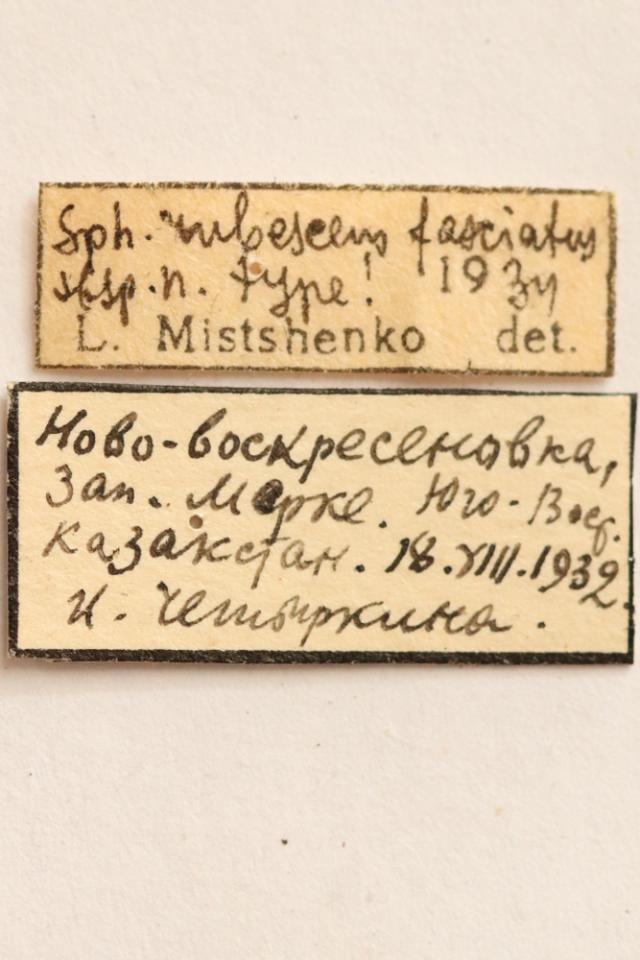 Sph. rubescens fasciatus
sbsp. n. type! 1934
L. Mistshenko det.
Ново-воскресеновка,
Зап. Мерке. Юго-Вост.
Казакстан. 18.VIII.1932.
И. Четыркина.